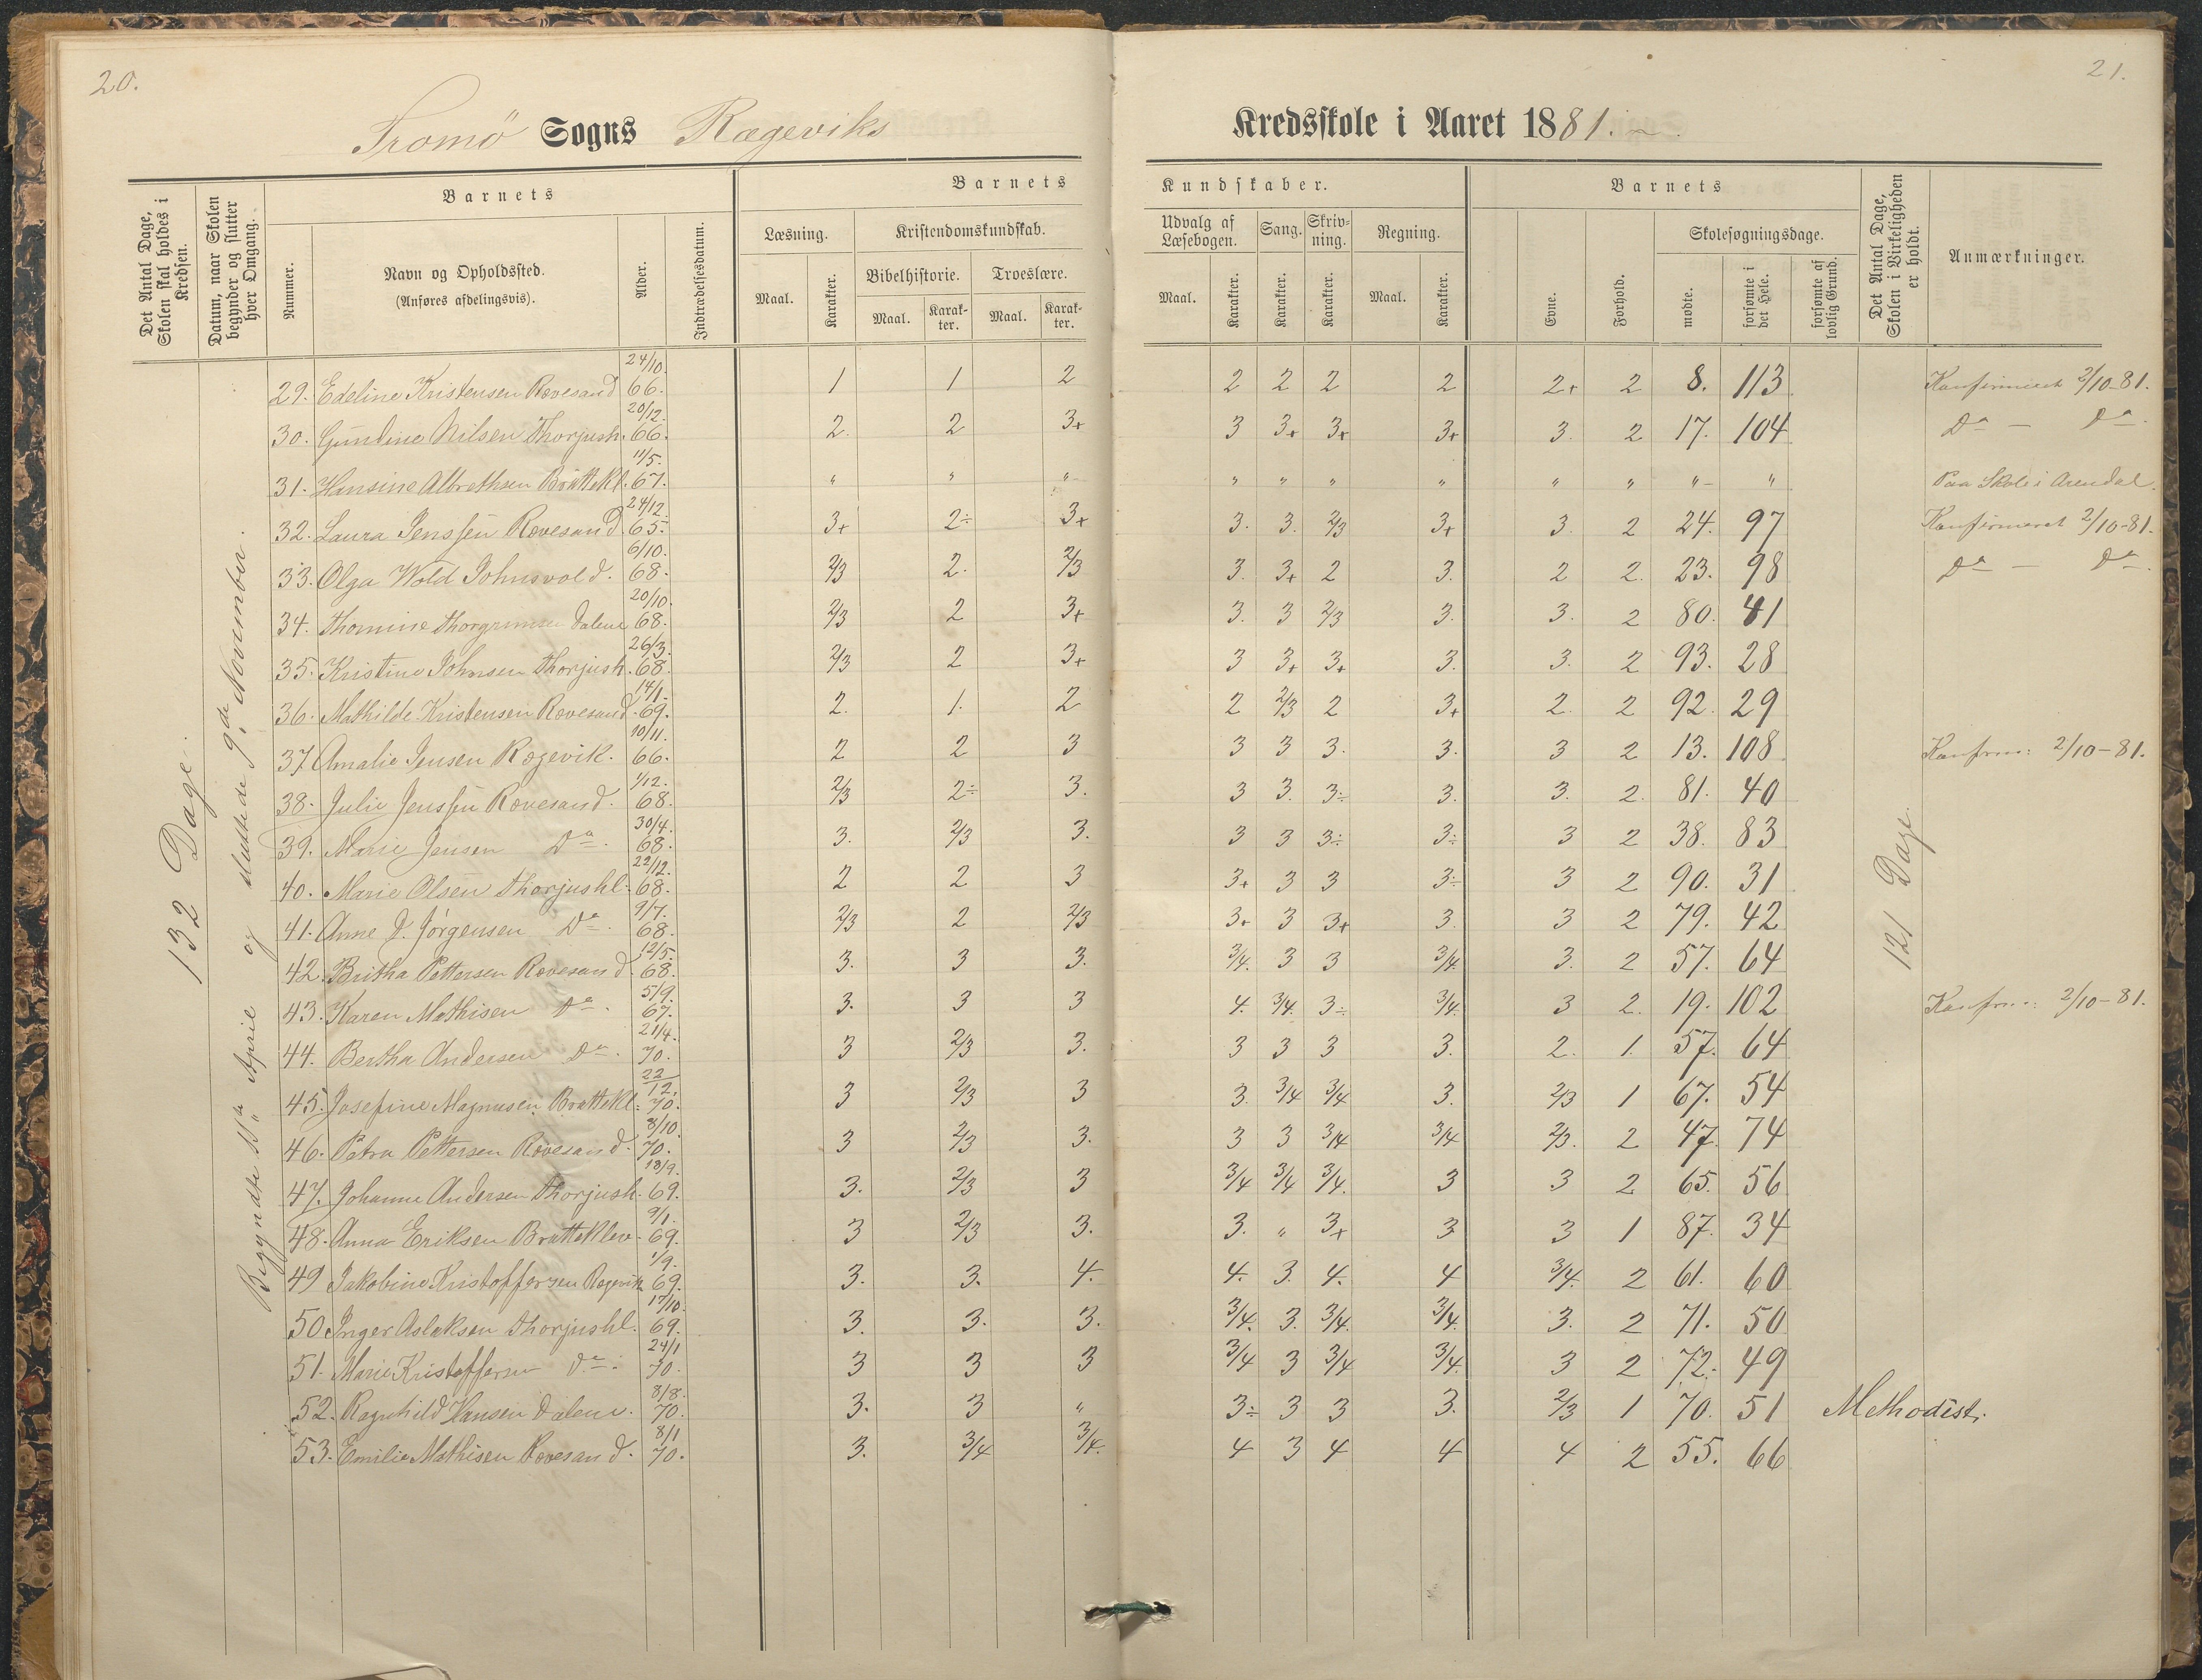 20.
21.
Tromö Sogns Rægeviks Kredsskole i Aaret 1881.
Det Antal Dage, Skolen skal holdes i Kredsen.
Datum, naar Skolen begynder og slutter hver Omgang.
Nummer.
Barnets
Navn og Opholdssted.
(Anføres afdelingsvis).
Alder.
Indtrædelsesdatum.
Barnets Kundskaber.
Læsning.
Maal.
Karakter.
Kristendomskundskab.
Bibelhistorie.
Maal.
Karakter.
Troeslære.
Maal.
Karakter.
Udvalg af Læsebogen.
Maal.
Karakter.
Sang.
Karakter.
Skrivning.
Karakter.
Regning.
Maal.
Karakter.
Barnets
Evne.
Forhold.
Skolesøgningsdage.
mødte.
forsømte i det Hele.
forsømte af lovlig Grund.
Det Antal Dage, Skolen i Virkeligheden er holdt.
Anmærkninger.
132 Dage.
Begyndte 11te April og sluttede 9de November.
121 Dage.
29. Edeline Kristensen Rovesand 24/10. 66. 1 1 2 2 2 2 2 2+ 2 8. 113 Konfirmeret 2/10-81.
30. Gundine Nilsen Thorjush. 20/12. 66. 2. 2 3+ 3 3+ 3+ 3+ 3. 2 17. 104 Do — Do.
31. Hansine Albrethsen Brattekl. 11/5. 67. " " " " " " " " " " " Paa Skole i Arendal.
32. Laura Jenssen Rovesand. 24/12. 65. 3+ 2÷ 3+ 3. 3. 2/3 3+ 3. 2 24. 97 Konfirmeret 2/10-81.
33. Olga Wold Johnsvold. 6/10. 68. 2/3 2. 2/3 3. 3+ 2 3. 2 2. 23. 98 Do — Do.
34. Thomine Thorgrimsen Dalene 20/10. 68. 2/3 2 3+ 3. 3 2/3 3. 3. 2 80. 41
35. Kristine Johnsen Thorjush. 26/3. 68. 2/3 2 3+ 3 3+ 3+ 3. 3. 2 93. 28
36. Mathilde Kristensen Rovesand. 14/1. 69. 2. 1. 2 2 2/3 2 3+ 2. 2 92. 29
37. Amalie Jensen Rægevik. 10/11. 66. 2 2 3 3 3 3. 3. 3 2 13. 108 Konfirm: 2/10-81.
38. Julie Jenssen Rovesand. 1/12. 68. 2/3 2÷ 3. 3 3. 3÷ 3. 3. 2. 81. 40
39. Marie Jensen Do. 30/4. 68. 3. 2/3 3. 3 3 3÷ 3÷ 3 2 38. 83
40. Marie Olsen Thorjushl. 22/12. 68. 2 2 3 3+ 3 3 3÷ 3 2 90. 31
41. Anne J. Jørgensen Do. 9/7. 68. 2/3 2 2/3 3+ 3 3+ 3 3 2 79. 42
42. Britha Pettersen Rovesand. 12/5. 68. 3. 3 3. 3/4. 3 3 3/4. 3. 2 57. 64
43. Karen Mathisen Do. 5/9. 67. 3. 3 3 4. 3/4. 3÷ 3/4. 3 2. 19. 102 Konfirm: 2/10-81.
44. Bertha Andersen Do. 21/4. 70. 3 2/3 3. 3 3 3 3. 2. 1. 57. 64
45. Josefine Magnusen Brattekl. 22/12. 70. 3 2/3 3 3. 3/4 3/4 3. 2/3 1 67. 54
46. Petra Pettersen Rovesand. 8/10. 70. 3 2/3 3. 3 3 3/4 3/4 2/3. 2 47. 74
47. Johanne Andersen Thorjush. 18/9. 69. 3. 2/3 3 3/4 3/4 3/4. 3 3 2 65. 56
48. Anna Eriksen Bratteklev. 9/1. 69. 3 2/3 3. 3. " 3+ 3 3 1 87. 34
49 Jakobine Kristoffersen Rægevik 1/9. 69. 3. 3. 4. 4. 3. 4. 4 3/4. 2 61. 60
50. Inger Aslaksen Thorjushl. 17/10. 69. 3. 3. 3. 3/4. 3. 3/4. 3/4. 3. 2 71. 50
51. Marie Kristoffersen Do. 24/1 70. 3 3 3 3/4 3 3/4 3/4. 3 2 72. 49
52. Ragnhild Hansen Dalene. 8/8. 70. 3. 3 " 3÷ 3 3 3. 2/3 1 70. 51 Methodist.
53. Emilie Mathisen Rovesand. 8/1 70. 3. 3/4 3/4. 4 3 4 4 4 2 55. 66